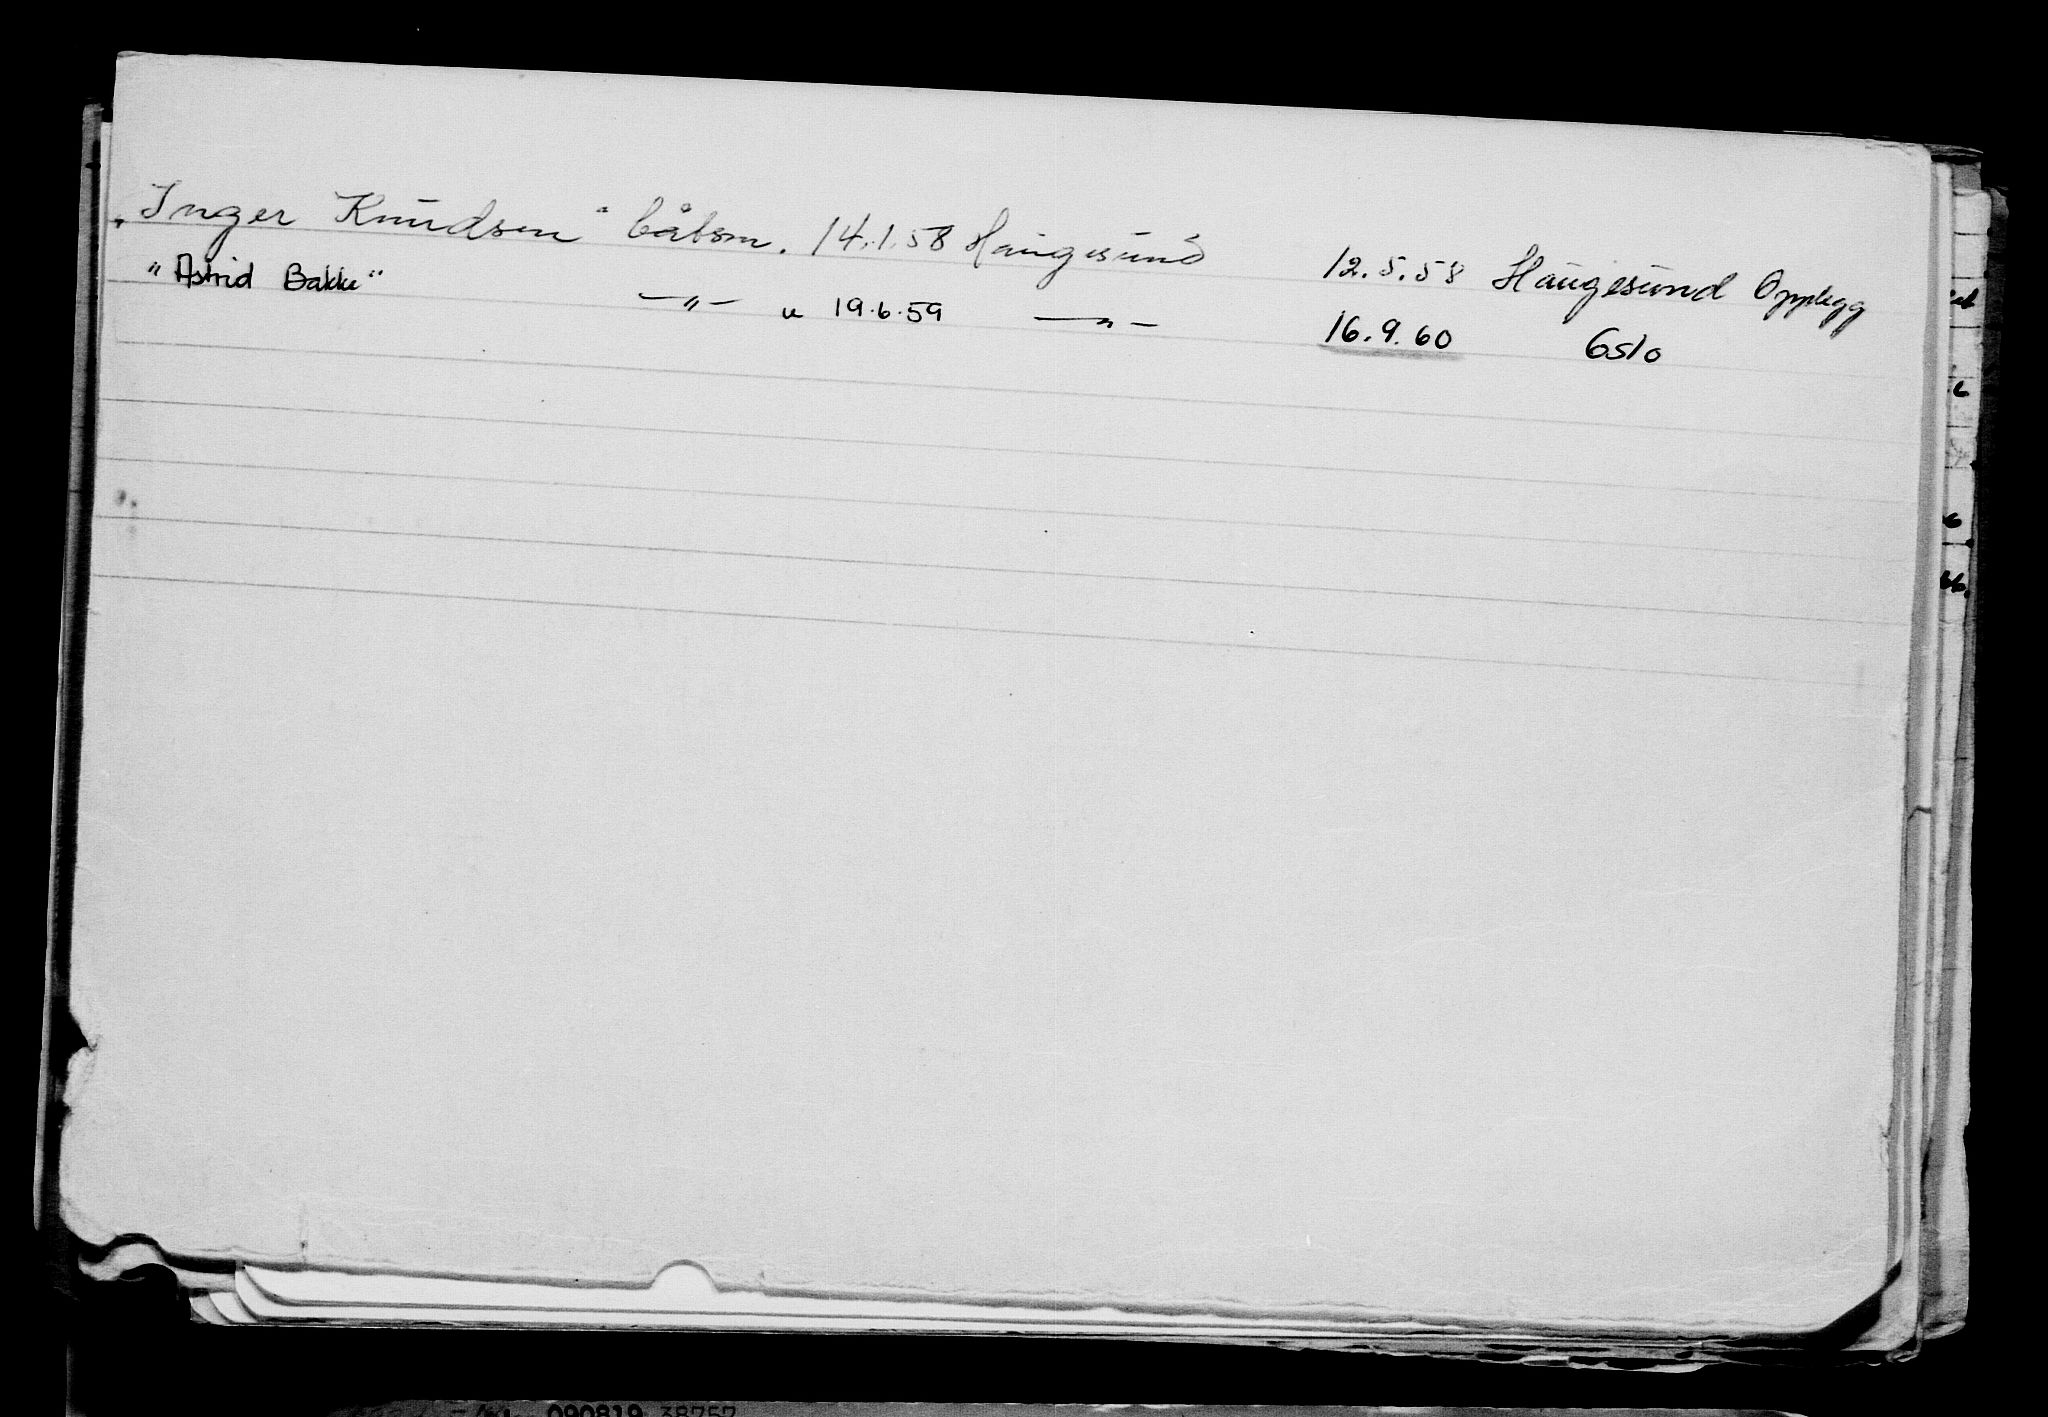 „Inger Knudsen" båtsm. 14.1.58 Haugesund 12.5.58 Haugesund Opplegg
"Astrid Bakke" —„— u 19.6.59 —„— 16.9.60 Oslo
090819 38757